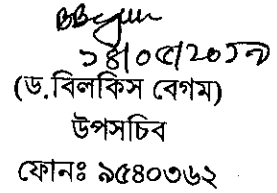 BBegum
১৪/০৫/২০১৭
(ড.বিলকিস বেগম)
উপসচিব
ফোনঃ ৯৫৪০৩৬২